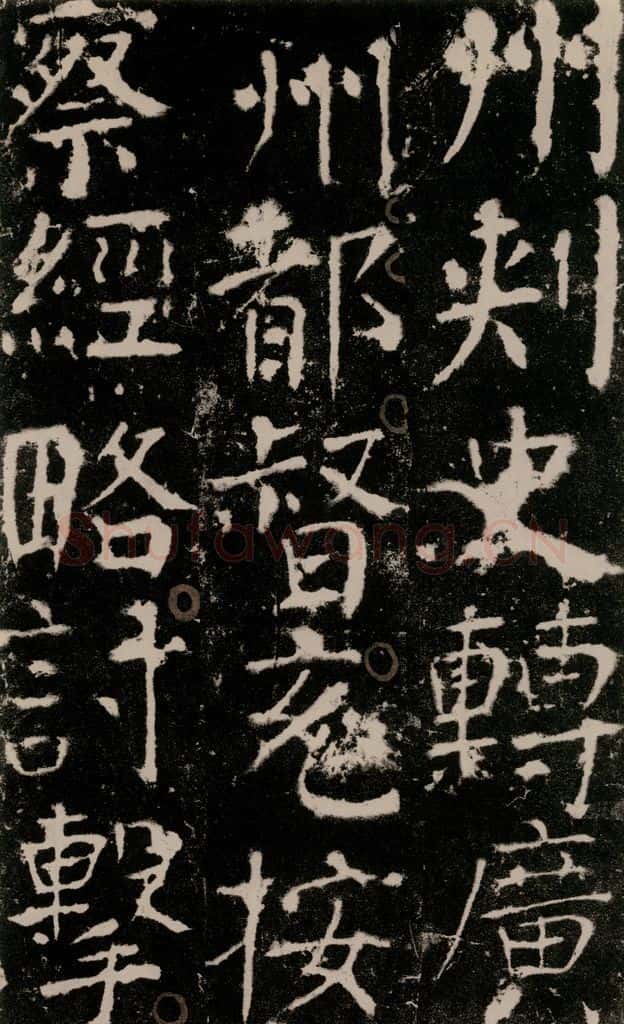 州刺史轉廣
州都督充按
察經略討擊
Shufawang.CN